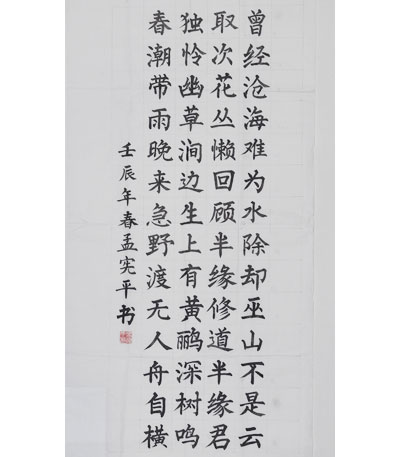 曾经沧海难为水除却巫山不是云
取次花丛懒回顾半缘修道半缘君
独怜幽草涧边生上有黄鹂深树鸣
春潮带雨晚来急野渡无人舟自横
壬辰年春孟宪平书